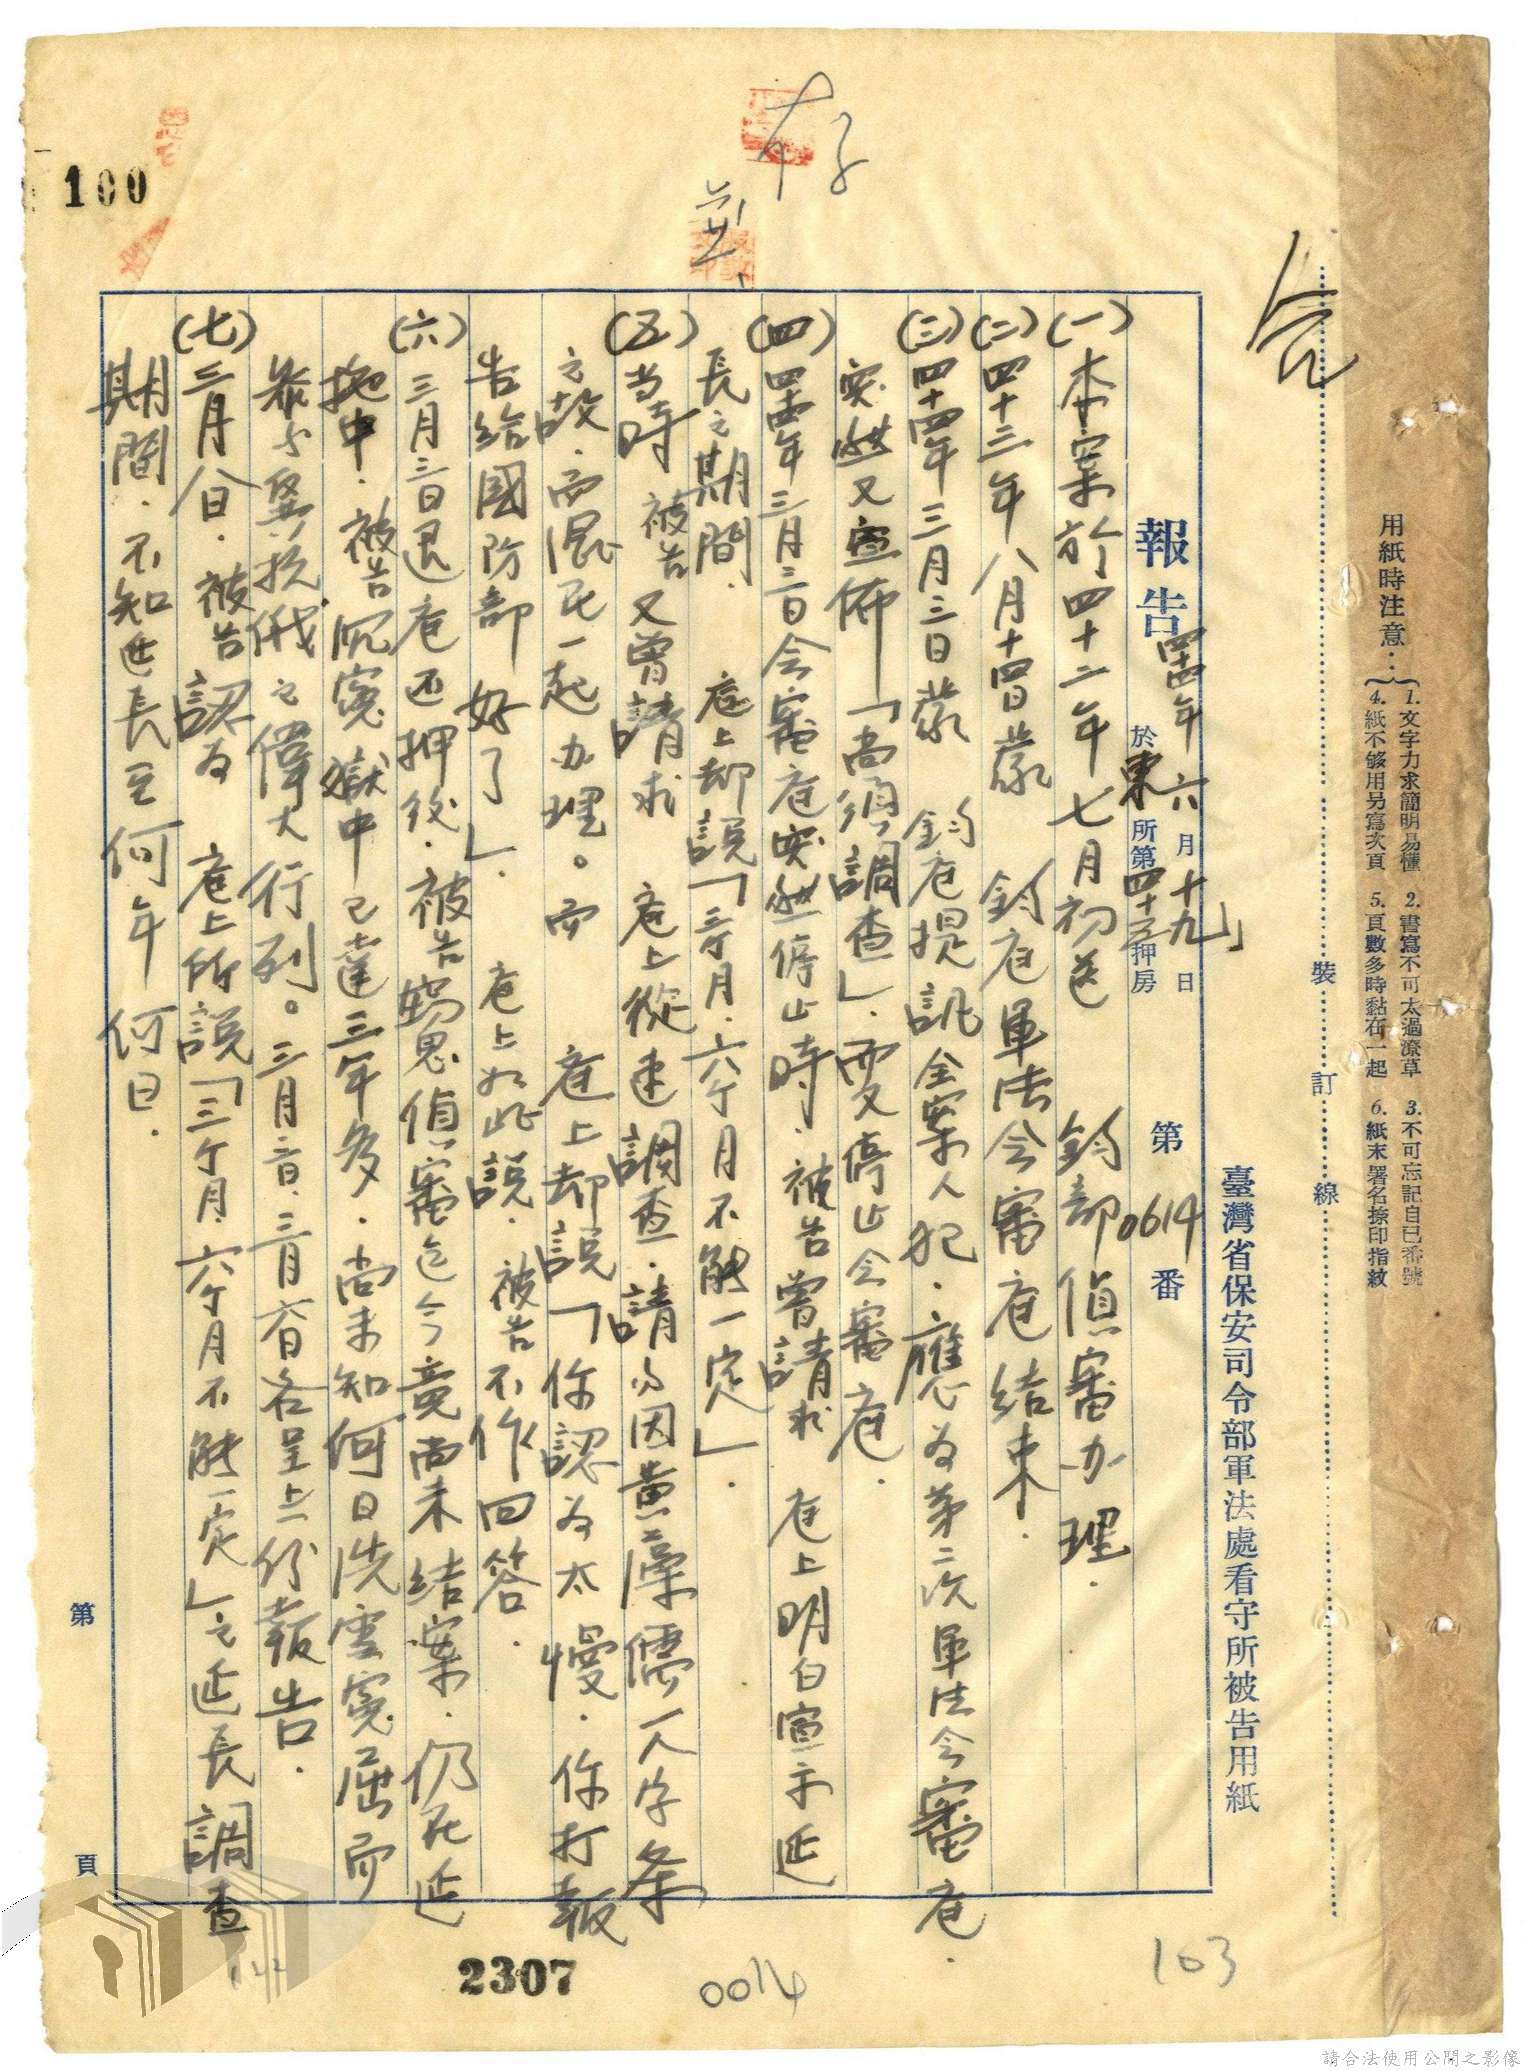 用紙時注意：
1.文字力求簡明易懂 2.書寫不可太過潦草 3.不可忘記自己番號
4.紙不够用另寫次頁 5.頁數多時黏在一起 6.紙末署名捺印指紋
裝訂線
臺灣省保安司令部軍法處看守所被告用紙
報告 四十四年六月十九日
於東所第四十三押房
第0614番
(一)本案於四十二年七月初送 鈞部偵審办理．
(二)四十三年八月十四日蒙 鈞庭軍法会審庭結束．
(三)四十四年三月三日蒙 鈞庭提訊全案人犯．應为第二次軍法会審庭．
突然又宣佈「尚須調查」．要又停止会審庭．
(四)四十四年三月三日会審庭突然停止時．被告曾請求 庭上明白宣示延
長之期間． 庭上却說「三个月．六个月不能一定」．
(五)当時 被告又曾請求 庭上從速調查．請勿因黃 儒一人字条
之故．而混死一起办理。而 庭上却說「你認为太慢．你打報
告給國防部 好了」． 庭上如此說．被告不作回答．
(六)三月三日退庭还押後．被告 思偵審迄今竟尚未結案．仍死延
拖中．被告沉寃獄中已達三年多．尚未知何日洗雪寃屈而
参与 抗俄之偉大行列。三月三日．三月六日各呈上一份報告．
(七)三月八日．被告認为 庭上所說「三个月．六个月不能一定」之延長調查
期間．不知延長至何年何日．
第 頁
存
100
2307
0014
103
122
請合法使用公開之影像